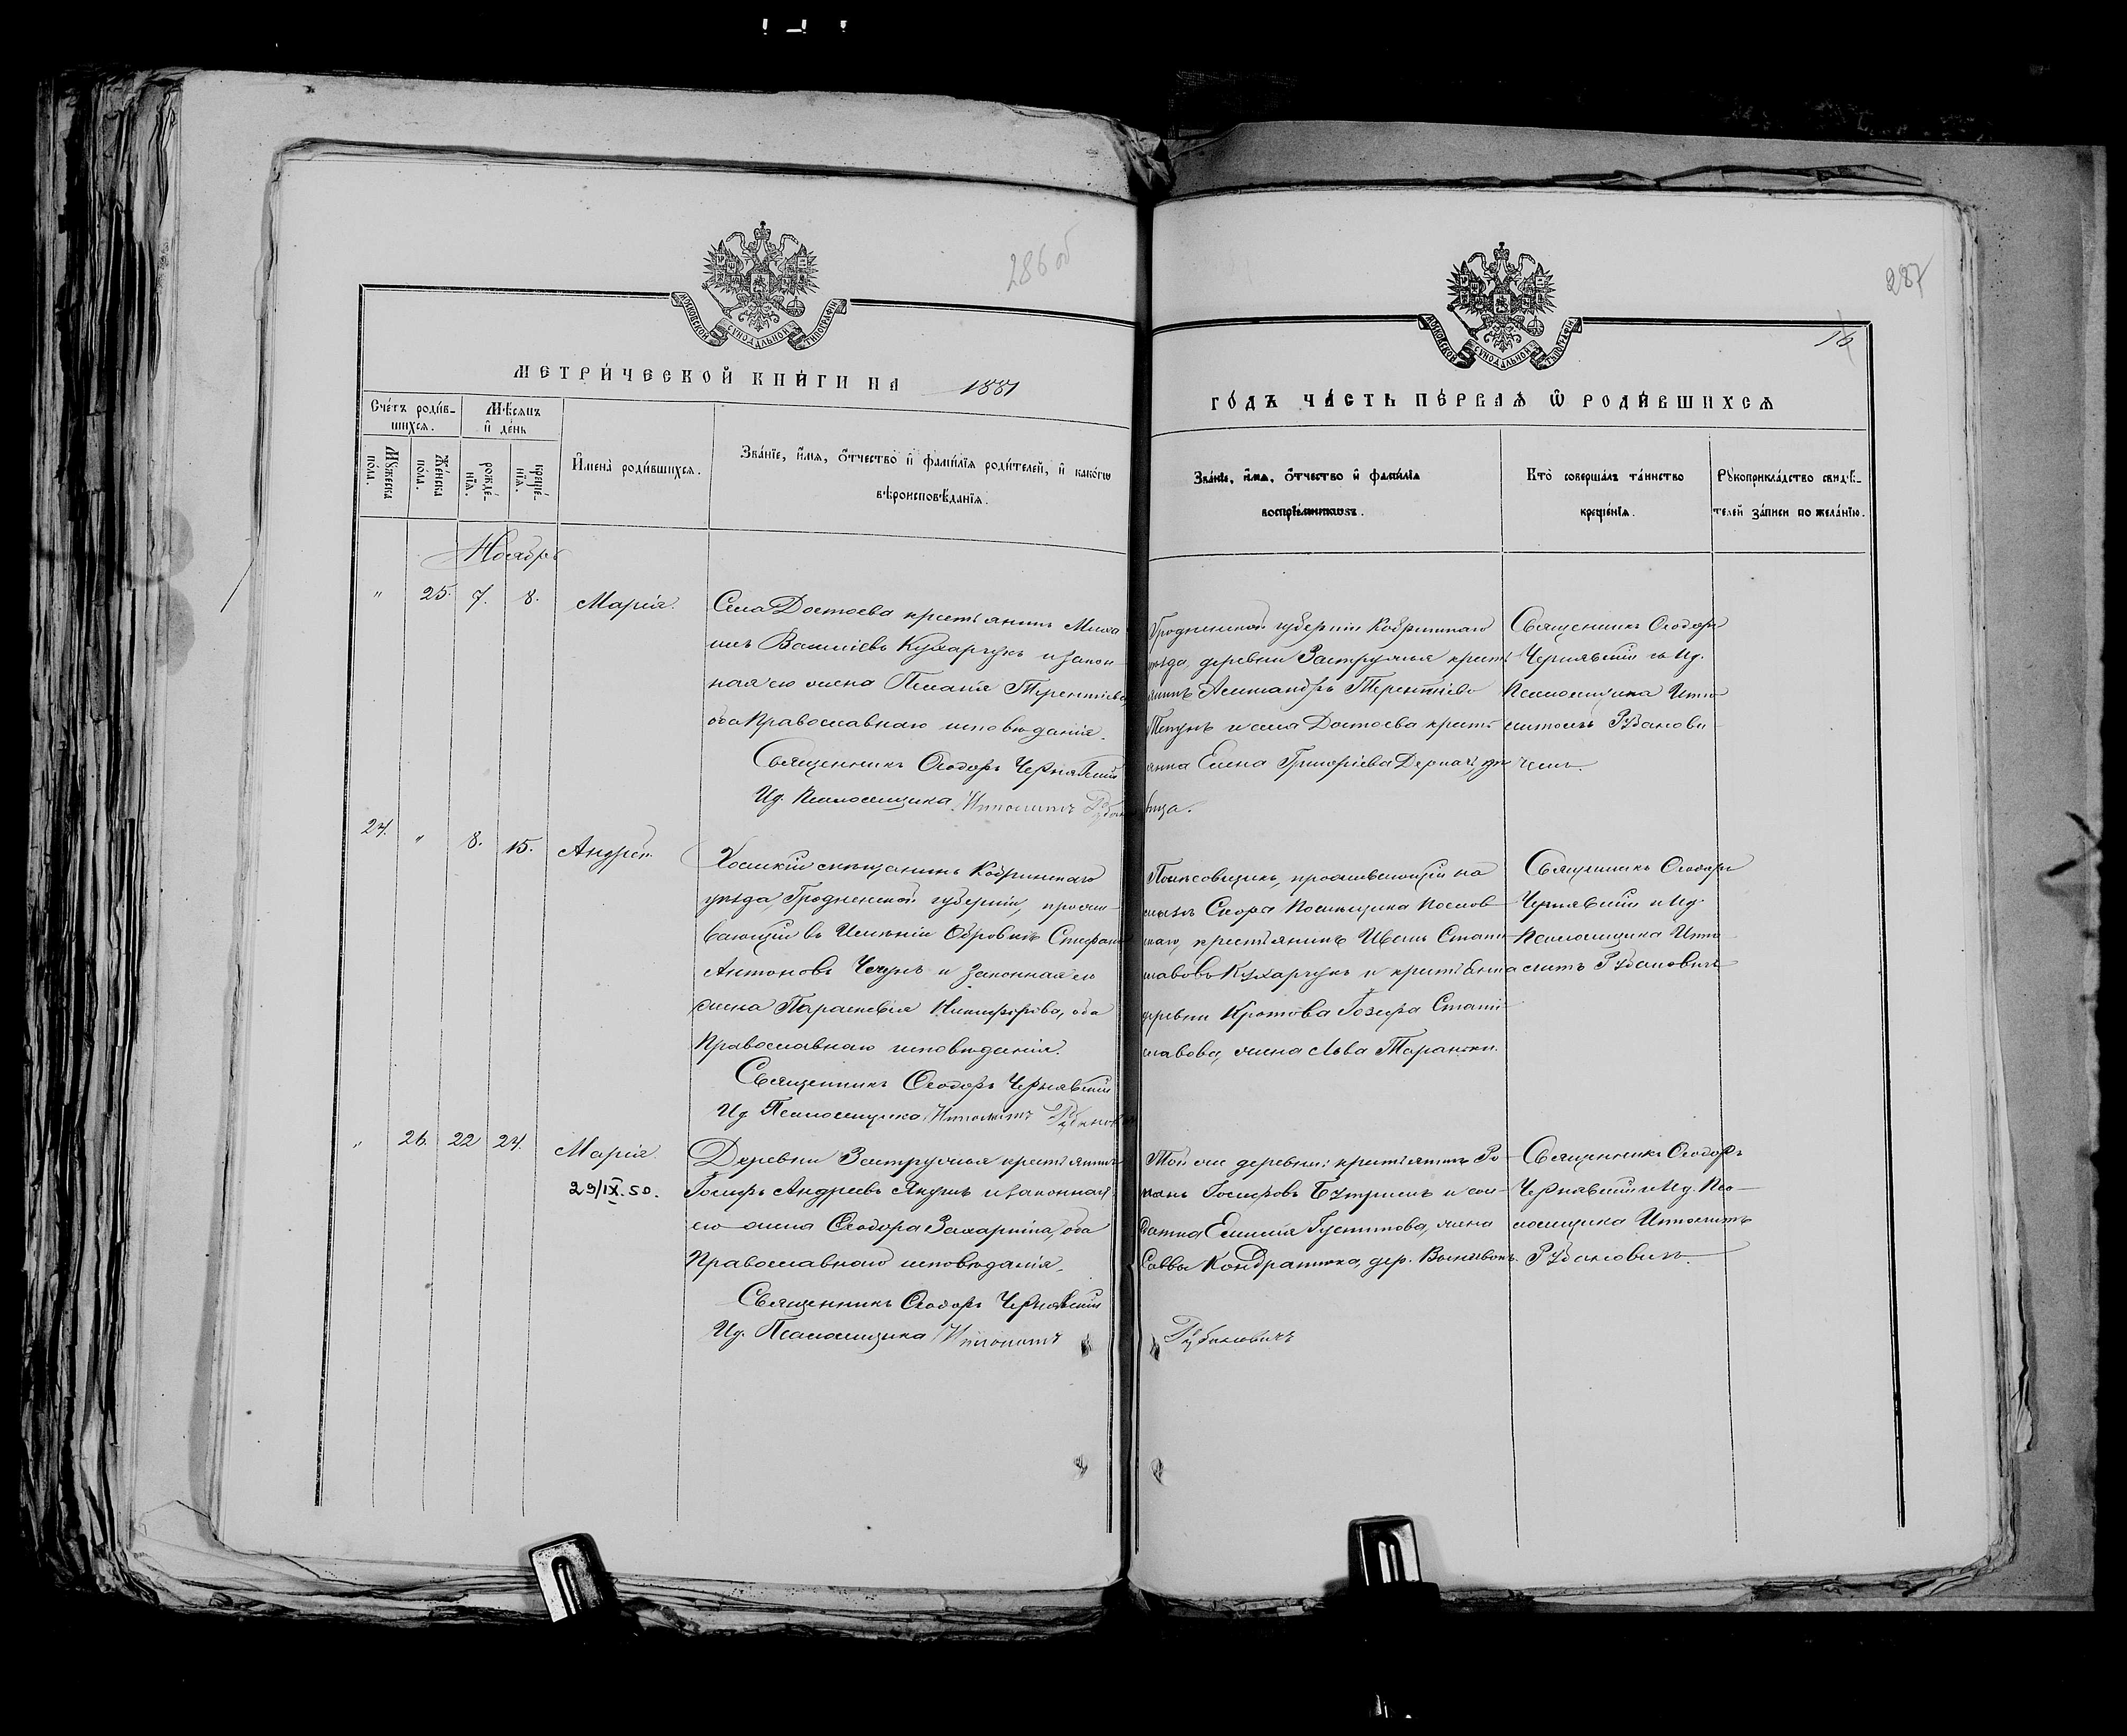 286 об
287
16
МОСКОВСКОЙ СѴНОДАЛЬНОЙ ТИПОГРАФІИ
МЕТРИ́ЧЕСКОЙ КНИ́ГИ НА 1881
Сче́тъ роди́в-
шихсѧ.
Мѣсѧцъ
и҆ де́нь
Мꙋ́жеска
по́ла.
Же́нска
по́ла.
рожде́-
нїѧ.
креще́-
нїѧ.
И҆мена̀ роди́вшихсѧ.
Зва́нїе, и҆́мѧ, ѻ҆́тчество и҆ фами́лїѧ роди́телей, и҆ како́гѡ
вѣроисповѣ́данїѧ.
Ноябрь
" 25. 7. 8. Марія.
Села Достоева крестьянинъ Миха
илъ Василіевъ Кухарчукъ и закон-
ная его жена Пелагія Терентіева,
оба Православнаго исповѣданія.
Священникъ Ѳеодоръ Чернявскій
Ид. Псаломщика Ипполитъ
24. " 8. 15. Андрей.
мѣщанинъ Кобринскаго
уѣзда, Гродненской губерніи, прожи-
вающій въ Имѣніи Обровкѣ Стефанъ
Антоновъ и законная его
жена Параскевія Никифорова, оба
Православнаго исповѣданія.
Священникъ Ѳеодоръ Чернявскій
Ид. Псаломщика Ипполитъ
" 26. 22 24. Марія.
29/IX.50.
Деревни Застружья крестьянинъ
Іосифъ Андреевъ Якушъ и законная
его жена Ѳеодора Захаріина, оба
Православнаго исповѣданія.
Священникъ Ѳеодоръ Чернявскій
Ид. Псаломщика Ипполитъ
МОСКОВСКОЙ СѴНОДАЛЬНОЙ ТИПОГРАФІИ
ГО́ДЪ ЧА́СТЬ ПЕ́РВАѦ Ѽ РОДИ́ВШИХСѦ
Зва́нїе, и҆́мѧ, ѻ҆́тчество и҆ фами́лїѧ
воспрїе́мниковъ.
Кто̀ соверша́лъ та́инство
креще́нїѧ.
Рꙋкоприкла́дство свидѣ́-
телей за́писи по жела́нїю.
Гродненской губерніи Кобринскаго
уѣзда, деревни Застружья крестья
янинъ Александръ Терентіевъ
и села Достоева кресть-
янка Елена Григоріева Деркачъ,
вица.
Священникъ Ѳеодоръ
Чернявскій съ Ид.
Псаломщика Иппо-
литомъ Рубанови-
чемъ.
проживающій на
крестьянинъ Иванъ Стани-
славовъ Кухарчукъ и крестьянка
деревни Кротова Іозефа Стани-
славова, жена Льва
Священникъ Ѳеодоръ
Чернявскій и Ид.
Псаломщика Иппо-
литъ Рубановичъ
Той же деревни: крестьянинъ Ро-
манъ Іосифовъ Бутримъ и сол-
датка Емилія Густинова, жена
Саввы Кондратюка, дер.
Рубановичъ
Священникъ Ѳеодоръ
Чернявскій и Ид. Пса-
ломщика Ипполитъ
Рубановичъ.